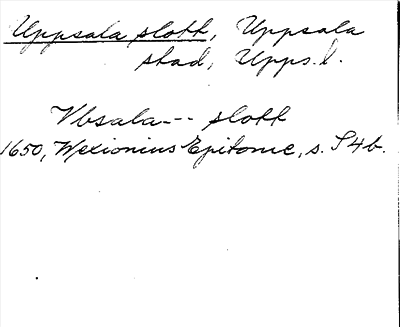 Uppsala slott, Uppsala
stad, Upps.l.
Vbsala-- slott
1650, Wexionius Epitome, s. S4b.